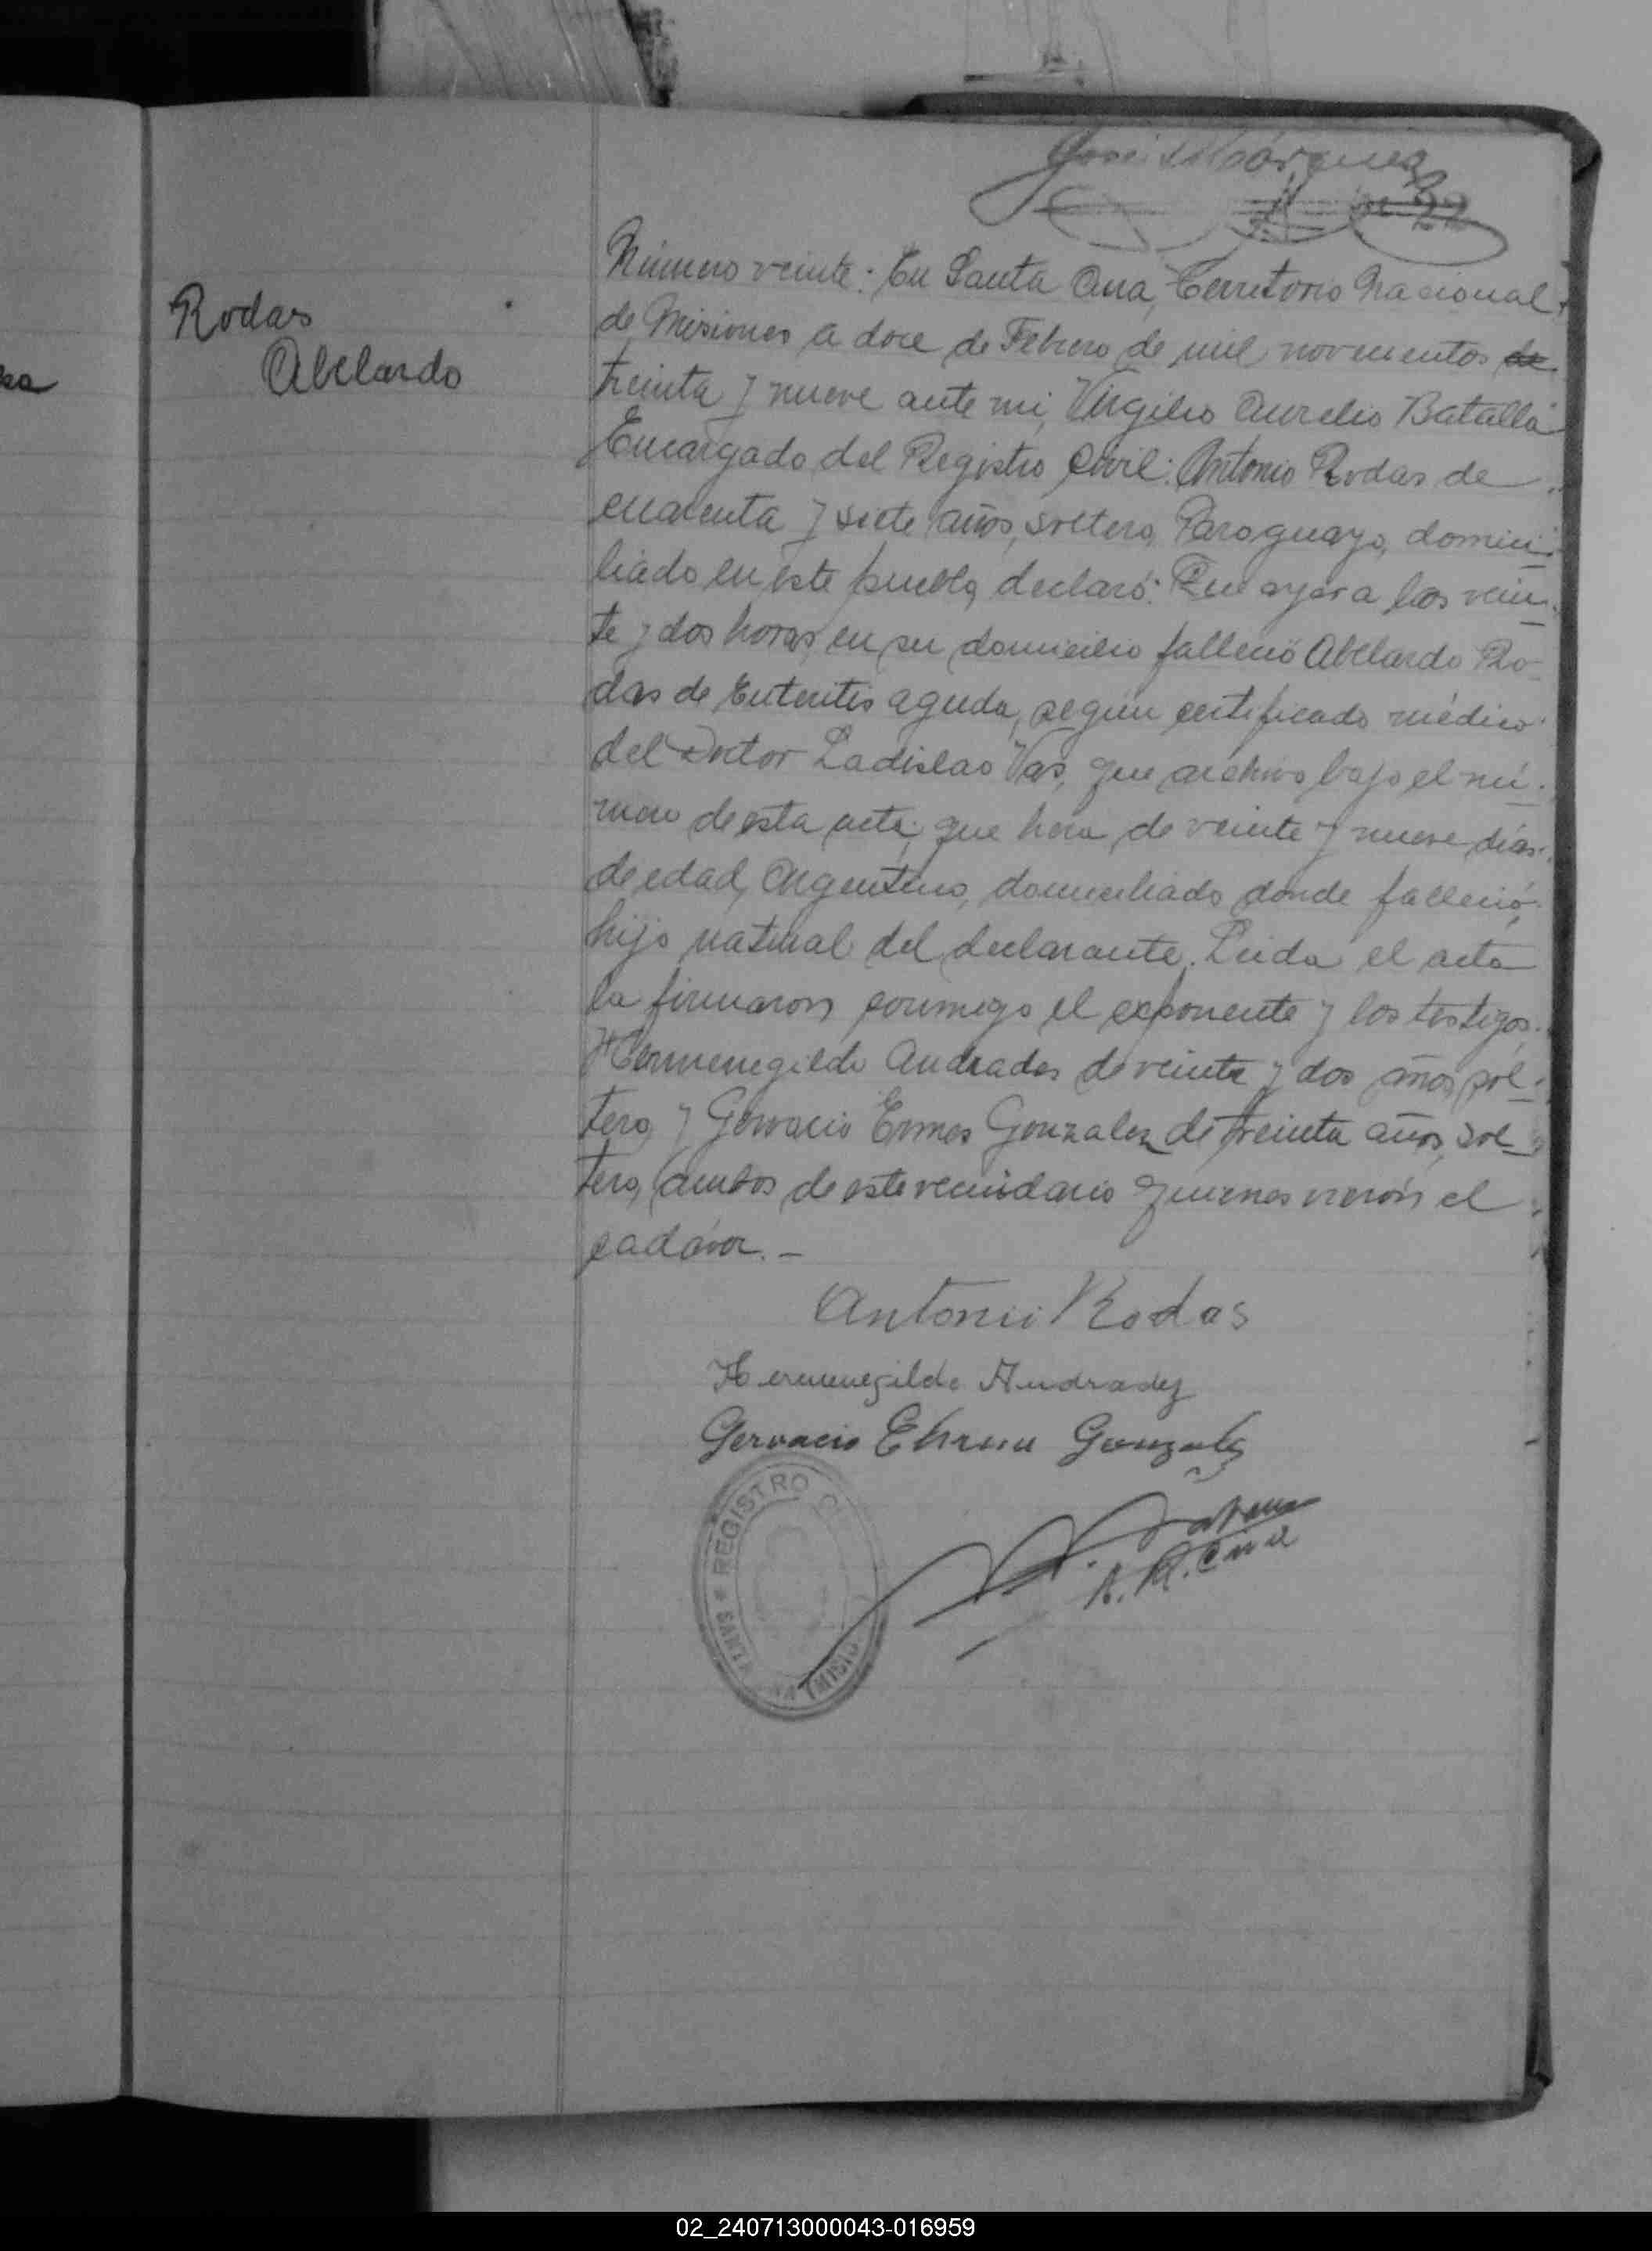 José Márquez
22
Rodas
Abelardo
Número veinte: En Santa Ana, Territorio Nacional
de Misiones a doce de Febrero de mil novecientos de
treinta y nueve ante mi, Virgilio Aurelio Batalla
Encargado del Registro Civil: Antonio Rodas de
cuarenta y siete años, soltero, Paraguayo, domici-
liado en este pueblo, declaró: Que ayer a las vein-
te y dos horas, en su domicilio falleció Abelardo Ro-
das de Enteritis aguda, según certificado médico
del Doctor Ladislao Vas, que archivo bajo el nú-
mero de esta acta; que hera de veinte y nueve días
de edad, Argentino, domiciliado donde falleció,
hijo natural del declarante. Leida el acta
la firmaron conmigo el exponente y los testigos,
Hermenegildo Andrades de veinte y dos años, sol-
tero, y Gervacio Ermes Gonzalez de treinta años, sol-
tero, ambos de este vecindario quienes vieron el
cadáver. -
Antonio Rodas
Hermenegildo Andradez
Gervacio Gonzalez
REGISTRO
SANTA
R. Civil
02_240713000043-016959